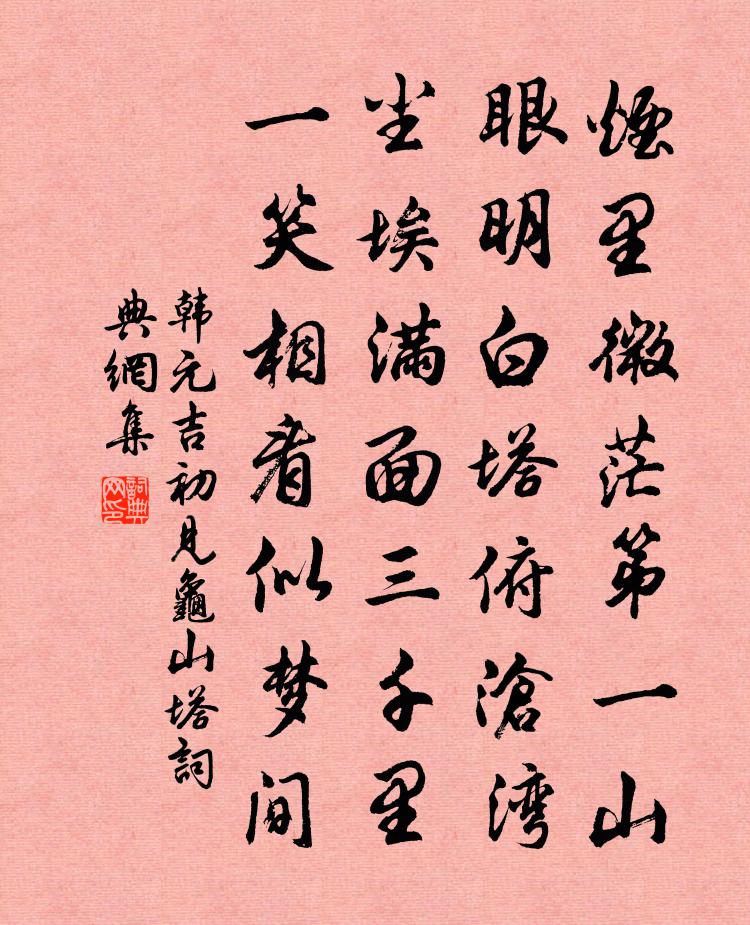 煙里微茫第一山
眼明白塔俯滄湾
尘埃满面三千里
一笑相看似梦间
韩元吉初见龜山塔詞
典網集
詞典
网印